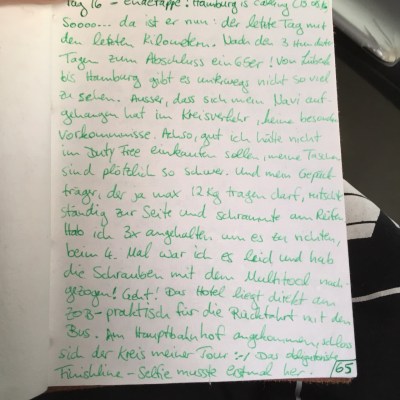 Tag 16 - Endetappe! Hamburg is calling
Soooo.... da ist er nun: der letzte Tag mit
den letzten Kilometern. Nach den 3 Hunderter
Tagen zum Abschluss ein 65er! Von Lübeck
bis Hamburg gibt es unterwegs nicht so viel
zu sehen. Ausser, dass sich mein Navi auf-
gehangen hat im Kreisverkehr, keine besonderen
Vorkommnisse. Achso, gut ich hätte nicht
im Duty Free einkaufen sollen, meine Taschen
sind plötzlich so schwer. Und mein Gepäck-
träger, der ja max 12 Kg tragen darf, rutschte
ständig zur Seite und schrammte am Reifen.
Hab ich 3x angehalten um es zu richten,
beim 4. Mal war ich es leid und hab
die Schrauben mit dem Multitool nach-
gezogen! Geht! Das Hotel liegt direkt am
ZOB - praktisch für die Rückfahrt mit dem
Bus. Am Hauptbahnhof angekommen, schloss
sich der Kreis meiner Tour :-) Das obligatorische
Finishline - Selfie musste erstmal her.
65